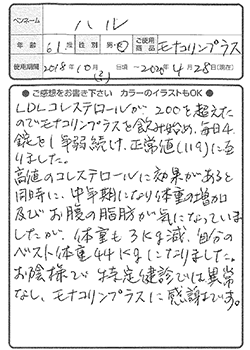 ペンネーム ハル
年齢 61才 性別 男・女 ご使用商品 モナコリンプラス
使用期間 2018年10月 日頃 〜 2020年4月28日(現在)
● ご感想をお書き下さい カラーのイラストもOK ●
LDLコレステロールが、200を超えた
のでモナコリンプラスを飲み始め、毎日4
錠を1年弱続け、正常値(119)に至
りました。
高値のコレステロールに効果があると
同時に、中年期になり体重の増加
及びお腹の脂肪が気になっていま
したが、体重も3kg減、自分の
ベスト体重44kgになりました。
お陰様で特定健診では異常
なし、モナコリンプラスに感謝です。